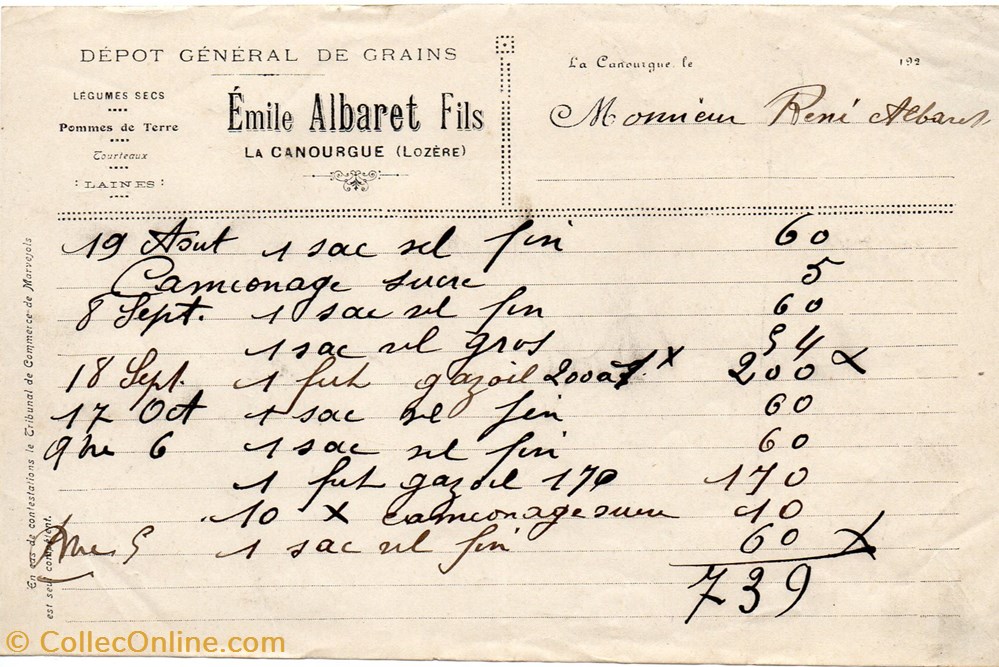 DÉPOT GÉNÉRAL DE GRAINS
LÉGUMES SECS
Pommes de Terre
Tourteaux
LAINES
Émile Albaret Fils
LA CANOURGUE (LOZÈRE)
La Canourgue, le 192
Monsieur René Albaret
19 Aout 1 sac sel fin 60
Camionage sucre 5
8 Sept. 1 sac sel fin 60
1 sac sel gros 54
18 Sept. 1 fut gazoil 200 à 1 x 200 x
17 Oct 1 sac sel fin 60
9bre 6 1 sac sel fin 60
1 fut gazoil 170 170
10 x camionage sucre 10
5 1 sac sel fin 60 x
739
En cas de contestations le Tribunal de Commerce de Marvejols
est seul compétent.
© CollecOnline.com